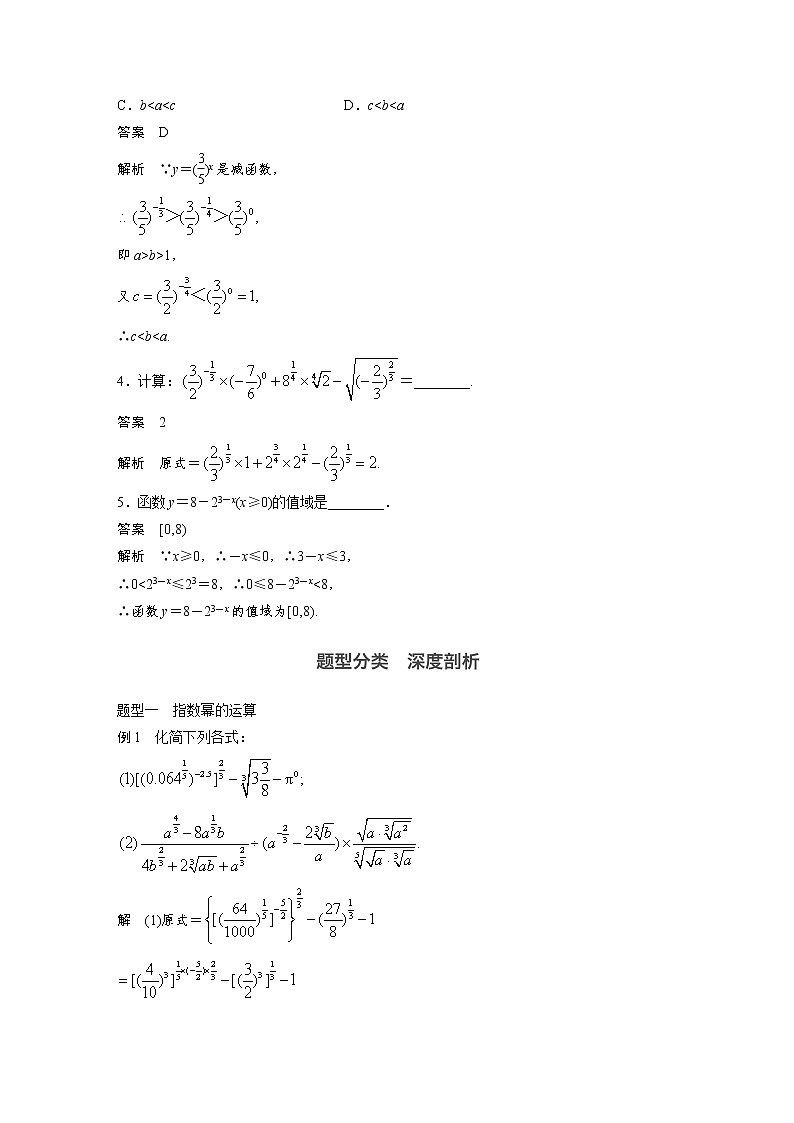 C．b<a<c D．c<b<a
答案 D
解析 ∵y＝(3/5)^x 是减函数，
∴ (3/5)^(-1/3)＞(3/5)^(-1/4)＞(3/5)^0，
即 a>b>1，
又 c＝(3/2)^(-3/4)＜(3/2)^0＝1，
∴c<b<a.
4．计算：(3/2)^(-1/3)×(-7/6)^0＋8^(1/4)×∜2－√((-2/3)^(2/3))＝________.
答案 2
解析 原式＝(2/3)^(1/3)×1＋2^(3/4)×2^(1/4)－(2/3)^(1/3)＝2.
5．函数 y＝8－2^(3－x)(x≥0)的值域是________．
答案 [0,8)
解析 ∵x≥0，∴－x≤0，∴3－x≤3，
∴0<2^(3－x)≤2^3＝8，∴0≤8－2^(3－x)<8，
∴函数 y＝8－2^(3－x) 的值域为[0,8).
题型分类 深度剖析
题型一 指数幂的运算
例 1 化简下列各式：
(1)[(0.064^(1/5))^(-2.5)]^(2/3)－∛(3 3/8)－π^0;
(2) (a^(4/3)－8a^(1/3)b)/(4b^(2/3)＋2∛(ab)＋a^(2/3))÷(a^(-2/3)－2∛b/a)×√(a·∛(a^2))/⁵√(√a·∛a).
解 (1)原式＝{[(64/1000)^(1/5)]^(-5/2)}^(2/3)－(27/8)^(1/3)－1
＝[(4/10)^3]^(1/5×(-5/2)×2/3)－[(3/2)^3]^(1/3)－1